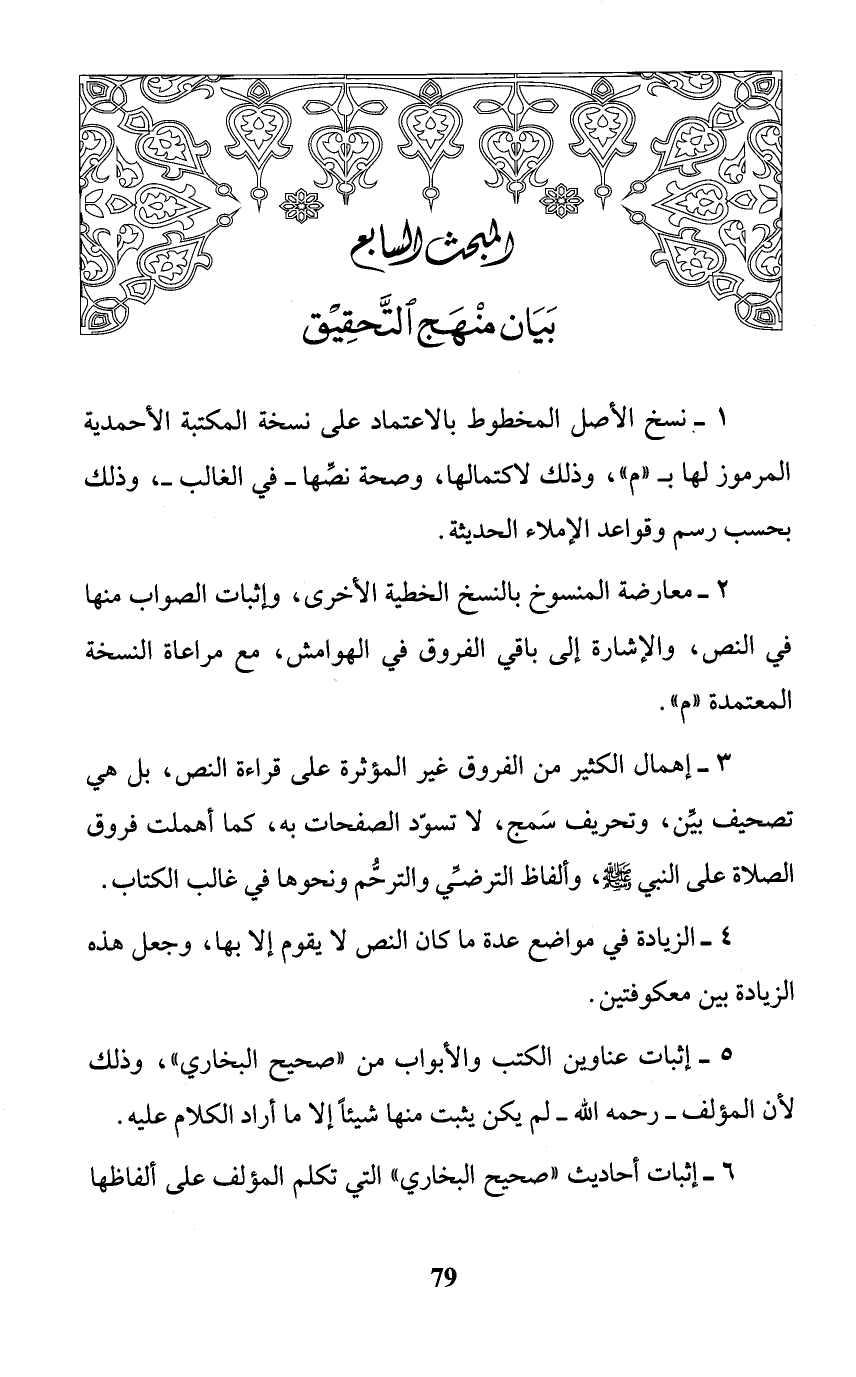 المبحث السابع
بَيَان مَنْهَج ٱلتَّحقِيْق
١ ـ نسخ الأصل المخطوط بالاعتماد على نسخة المكتبة الأحمدية
المرموز لها بـ «م»، وذلك لاكتمالها، وصحة نصِّها ـ في الغالب ـ، وذلك
بحسب رسم وقواعد الإملاء الحديثة.
٢ ـ معارضة المنسوخ بالنسخ الخطية الأخرى، وإثبات الصواب منها
في النص، والإشارة إلى باقي الفروق في الهوامش، مع مراعاة النسخة
المعتمدة «م».
٣ ـ إهمال الكثير من الفروق غير المؤثرة على قراءة النص، بل هي
تصحيف بيِّن، وتحريف سَمج، لا تسوّد الصفحات به، كما أهملت فروق
الصلاة على النبي ﷺ، وألفاظ الترضِّي والترحُّم ونحوها في غالب الكتاب.
٤ ـ الزيادة في مواضع عدة ما كان النص لا يقوم إلا بها، وجعل هذه
الزيادة بين معكوفتين.
٥ ـ إثبات عناوين الكتب والأبواب من «صحيح البخاري»، وذلك
لأن المؤلف ـ رحمه الله ـ لم يكن يثبت منها شيئاً إلا ما أراد الكلام عليه.
٦ ـ إثبات أحاديث «صحيح البخاري» التي تكلم المؤلف على ألفاظها
79